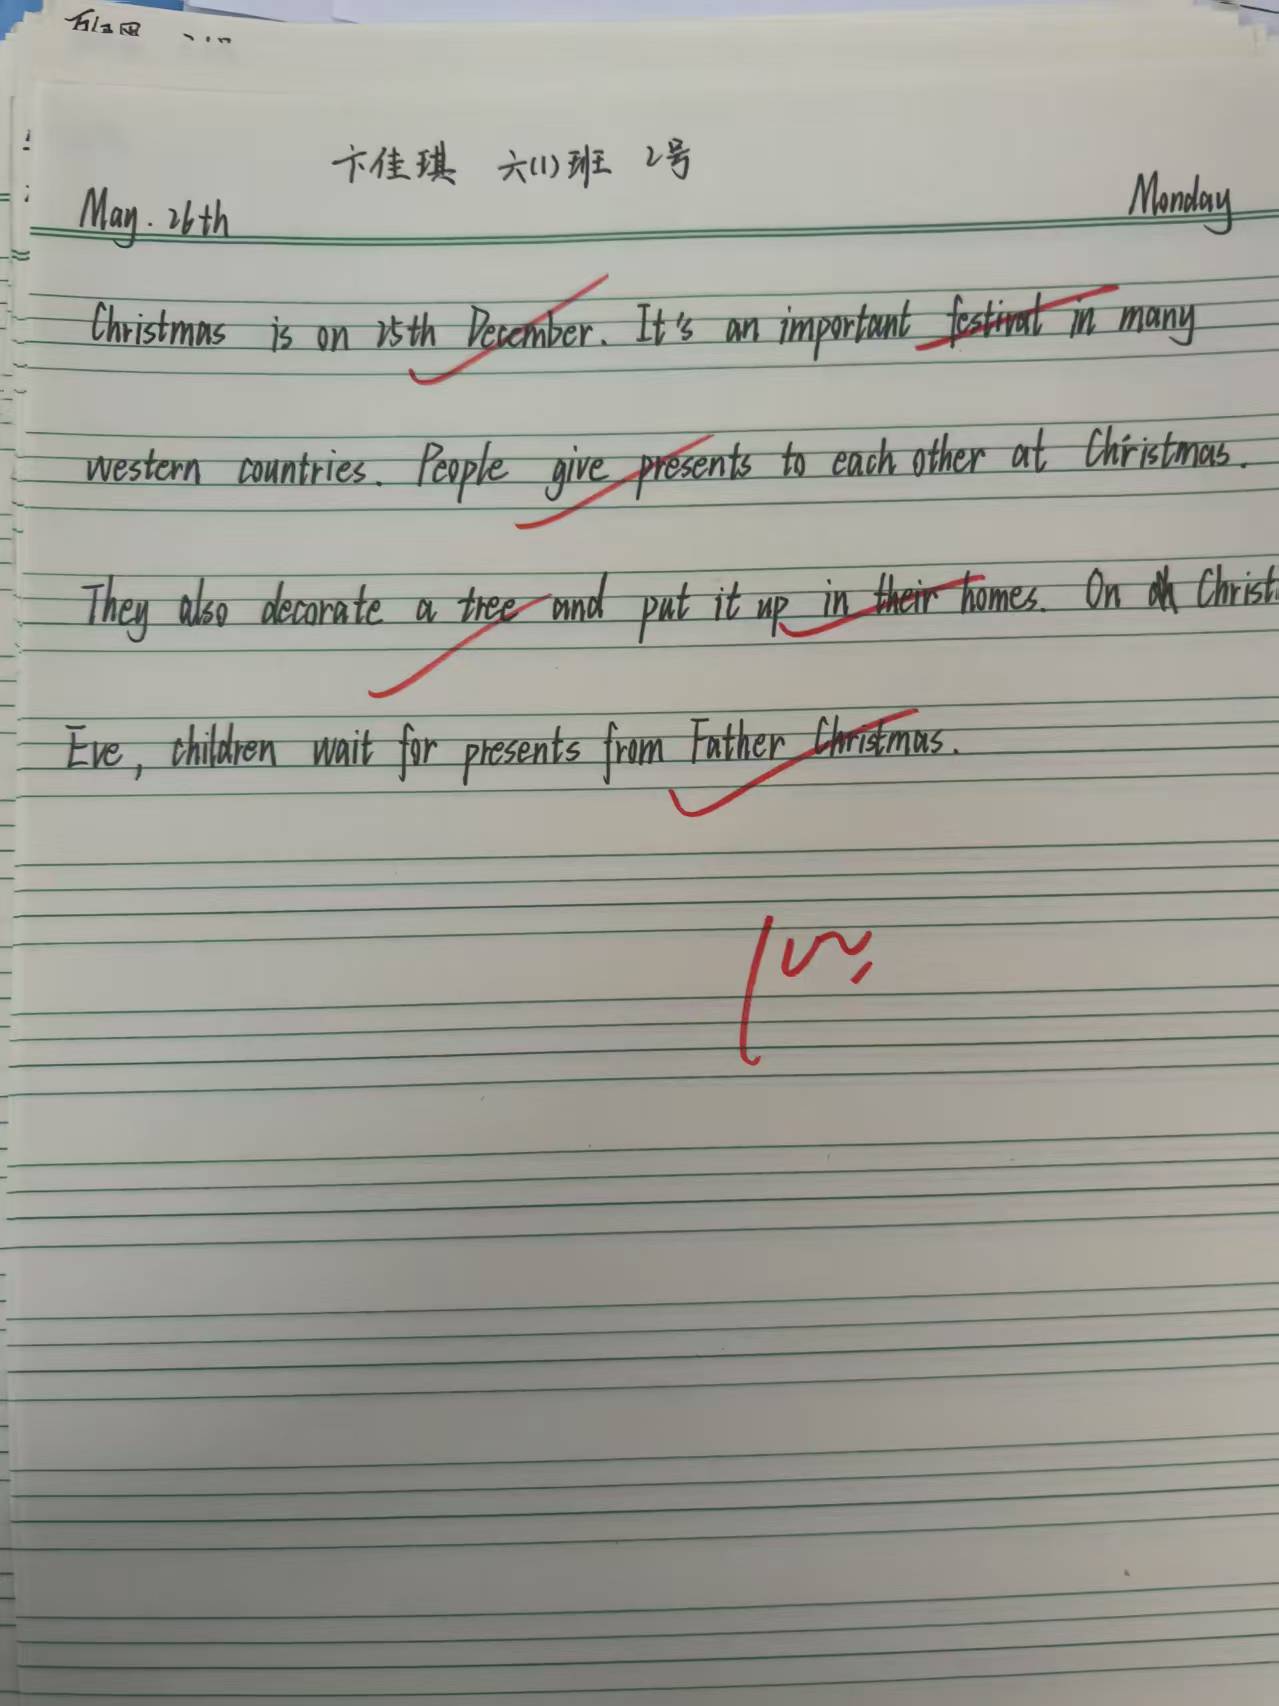 卞佳琪 六(1)班 2号
May. 26th Monday
Christmas is on 25th December. It's an important festival in many
western countries. People give presents to each other at Christmas.
They also decorate a tree and put it up in their homes. On Christ
Eve, children wait for presents from Father Christmas.